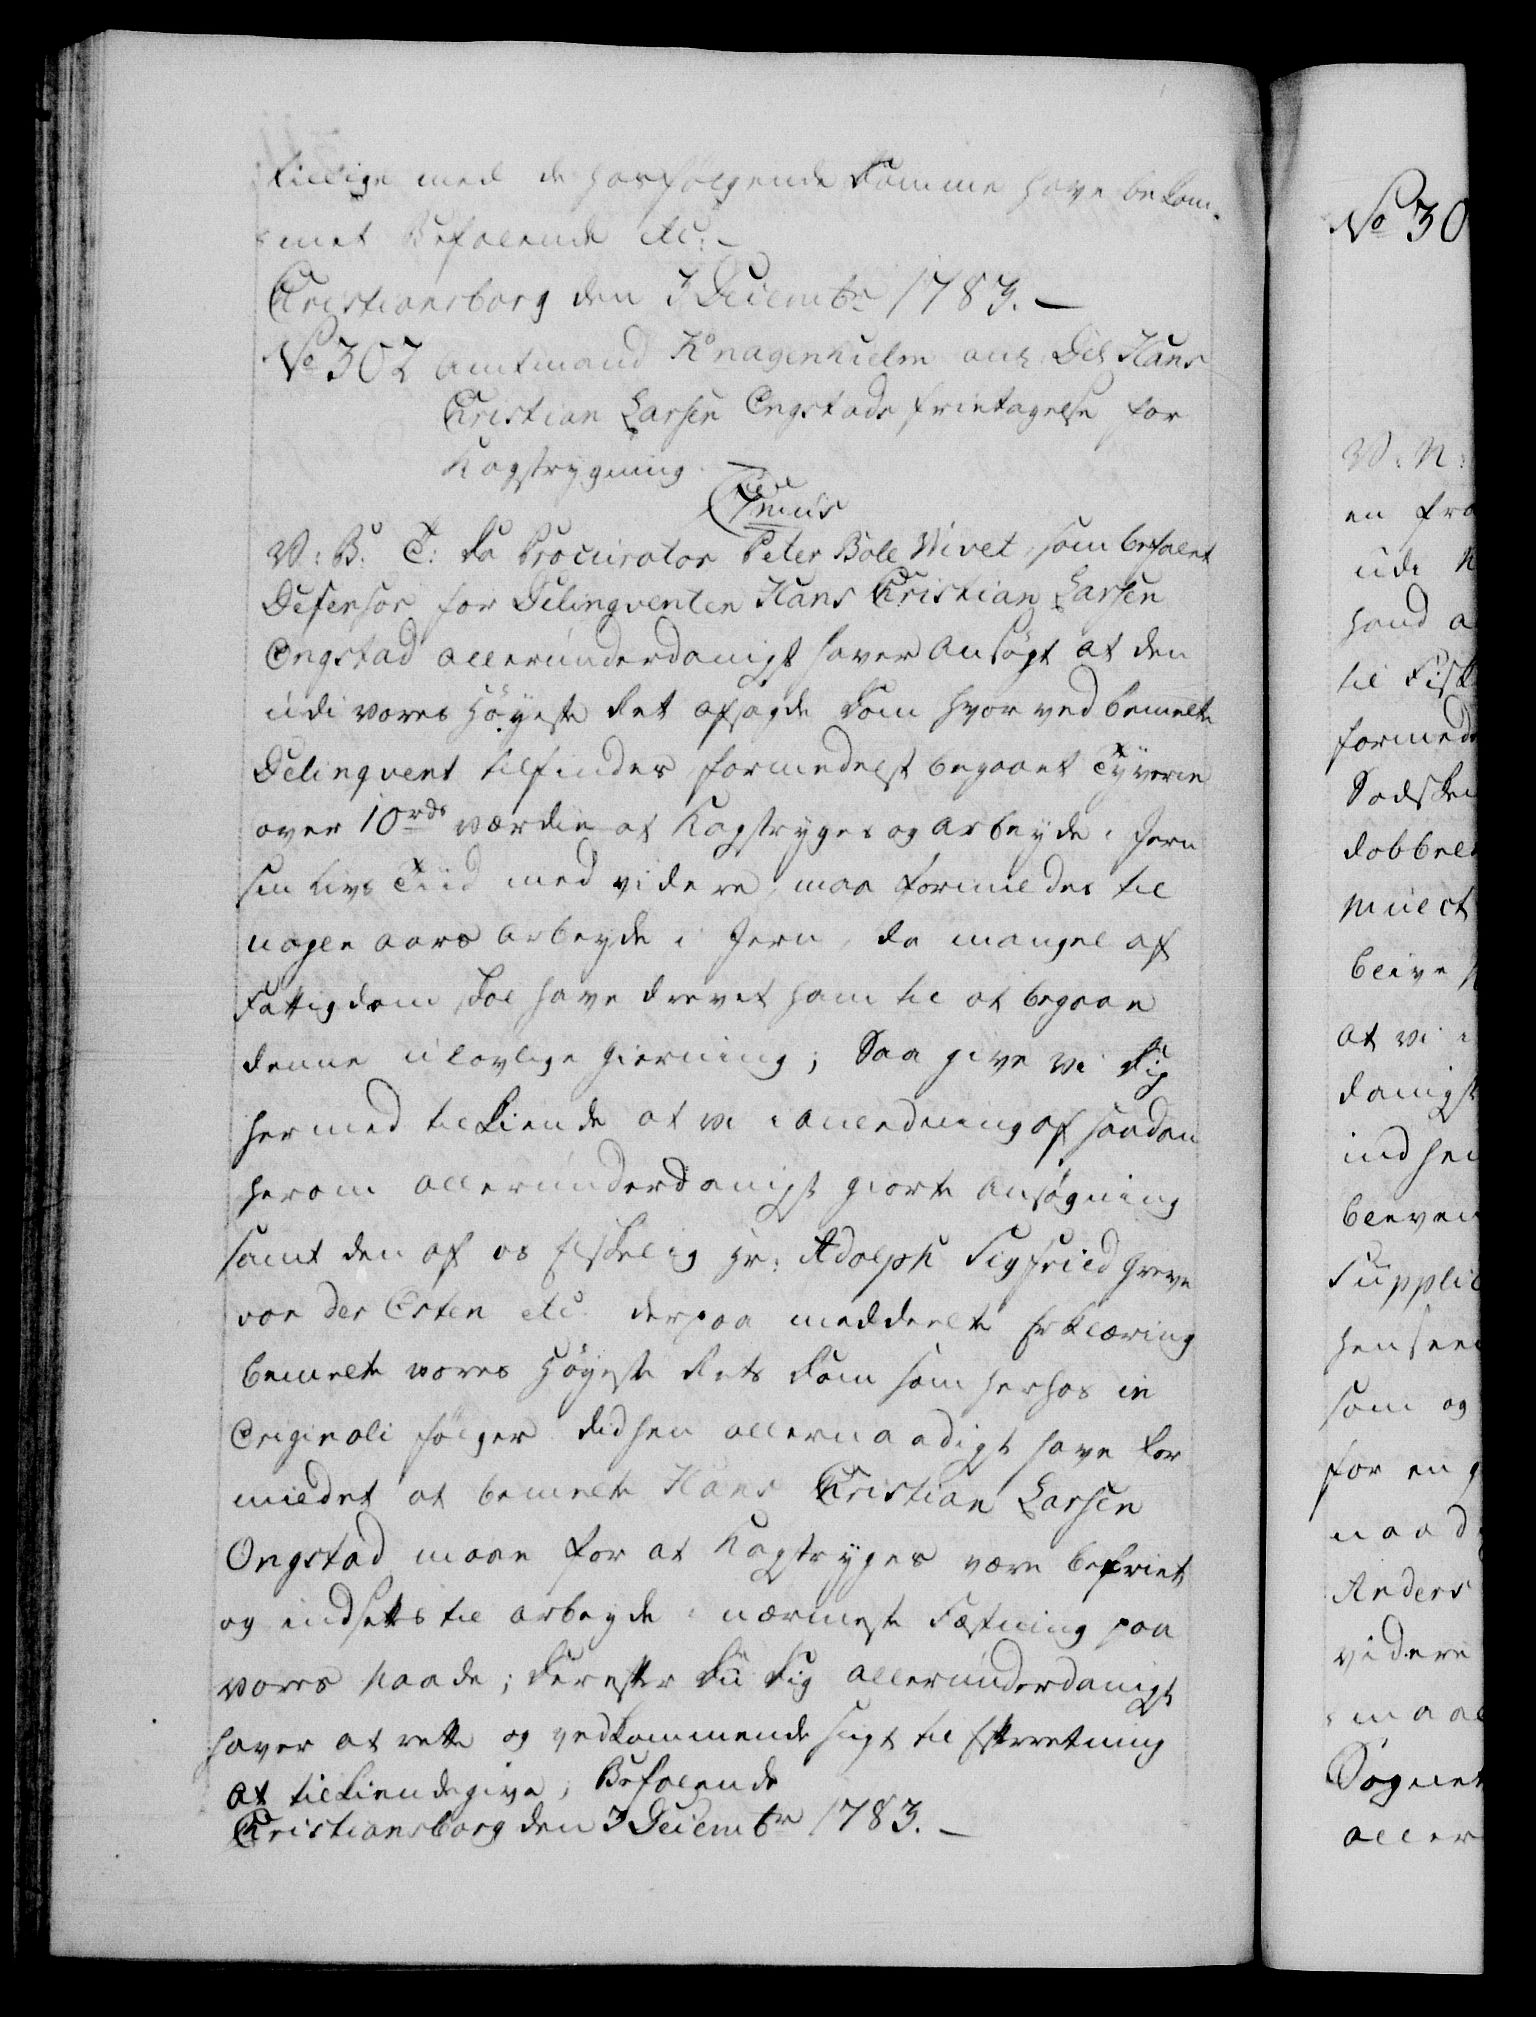 tillige med de herfølgende Domme have bekom-
met Befalende etc:
Christiansborg den 3 Decembr 1783. —
No 302 Amtmand Knagenhielm anl. Del. Hans
Christian Larsen Ongstads frietagelse for
Kagstrygning. —
V: B: T: Da Procurator Peter Bole Wivet, som befalet
Defensor for Delinqventen Hans Christian Larsen
Ongstad allerunderdanigst haver ansøgt at den
udi vores Høyeste Ret afsagde Dom hvorved bemelte
Delinqvent tilfindes formedelst begaaet Tyverie
over 10 rdr værdie at Kagstryges og arbeyde i Jern
sin livs Tiid med videre, maa formildes til
nogle aars arbeyde i Jern, da mangel af
Fattigdom skal have drevet ham til at begaae
denne ulovlige Gierning; Saa give vi Dig
hermed tilkiende at vi i anledning af saadan
herom allerunderdanigst giorte ansøgning
samt den af os Elskelig Hr: Adolph Sigfried Greve
von der Osten etc. derpaa meddeelte Erklæring
bemelte vores Høyeste Rets Dom som herhos in
Originali følger didhen allernaadigst have for
mildet at bemelte Hans Christian Larsen
Ongstad maae for at Kagstryges være befriet
og indsættes til arbeyde i nærmeste Fæstning paa
vores Naade; Derefter Du Dig allerunderdanigst
haver at rette og vedkommende sligt til Efterretning
at tilkiendegive; Befalende
Christiansborg den 3 Decembr 1783. —
No 30
V: N:
en fra
udi
til
formede
dobbel
mulct
blive
at vi i
danigst
indhen
bleven
Supplic
hensee
som og
for en g
naad
Anders
videre
maae
Sognet
aller